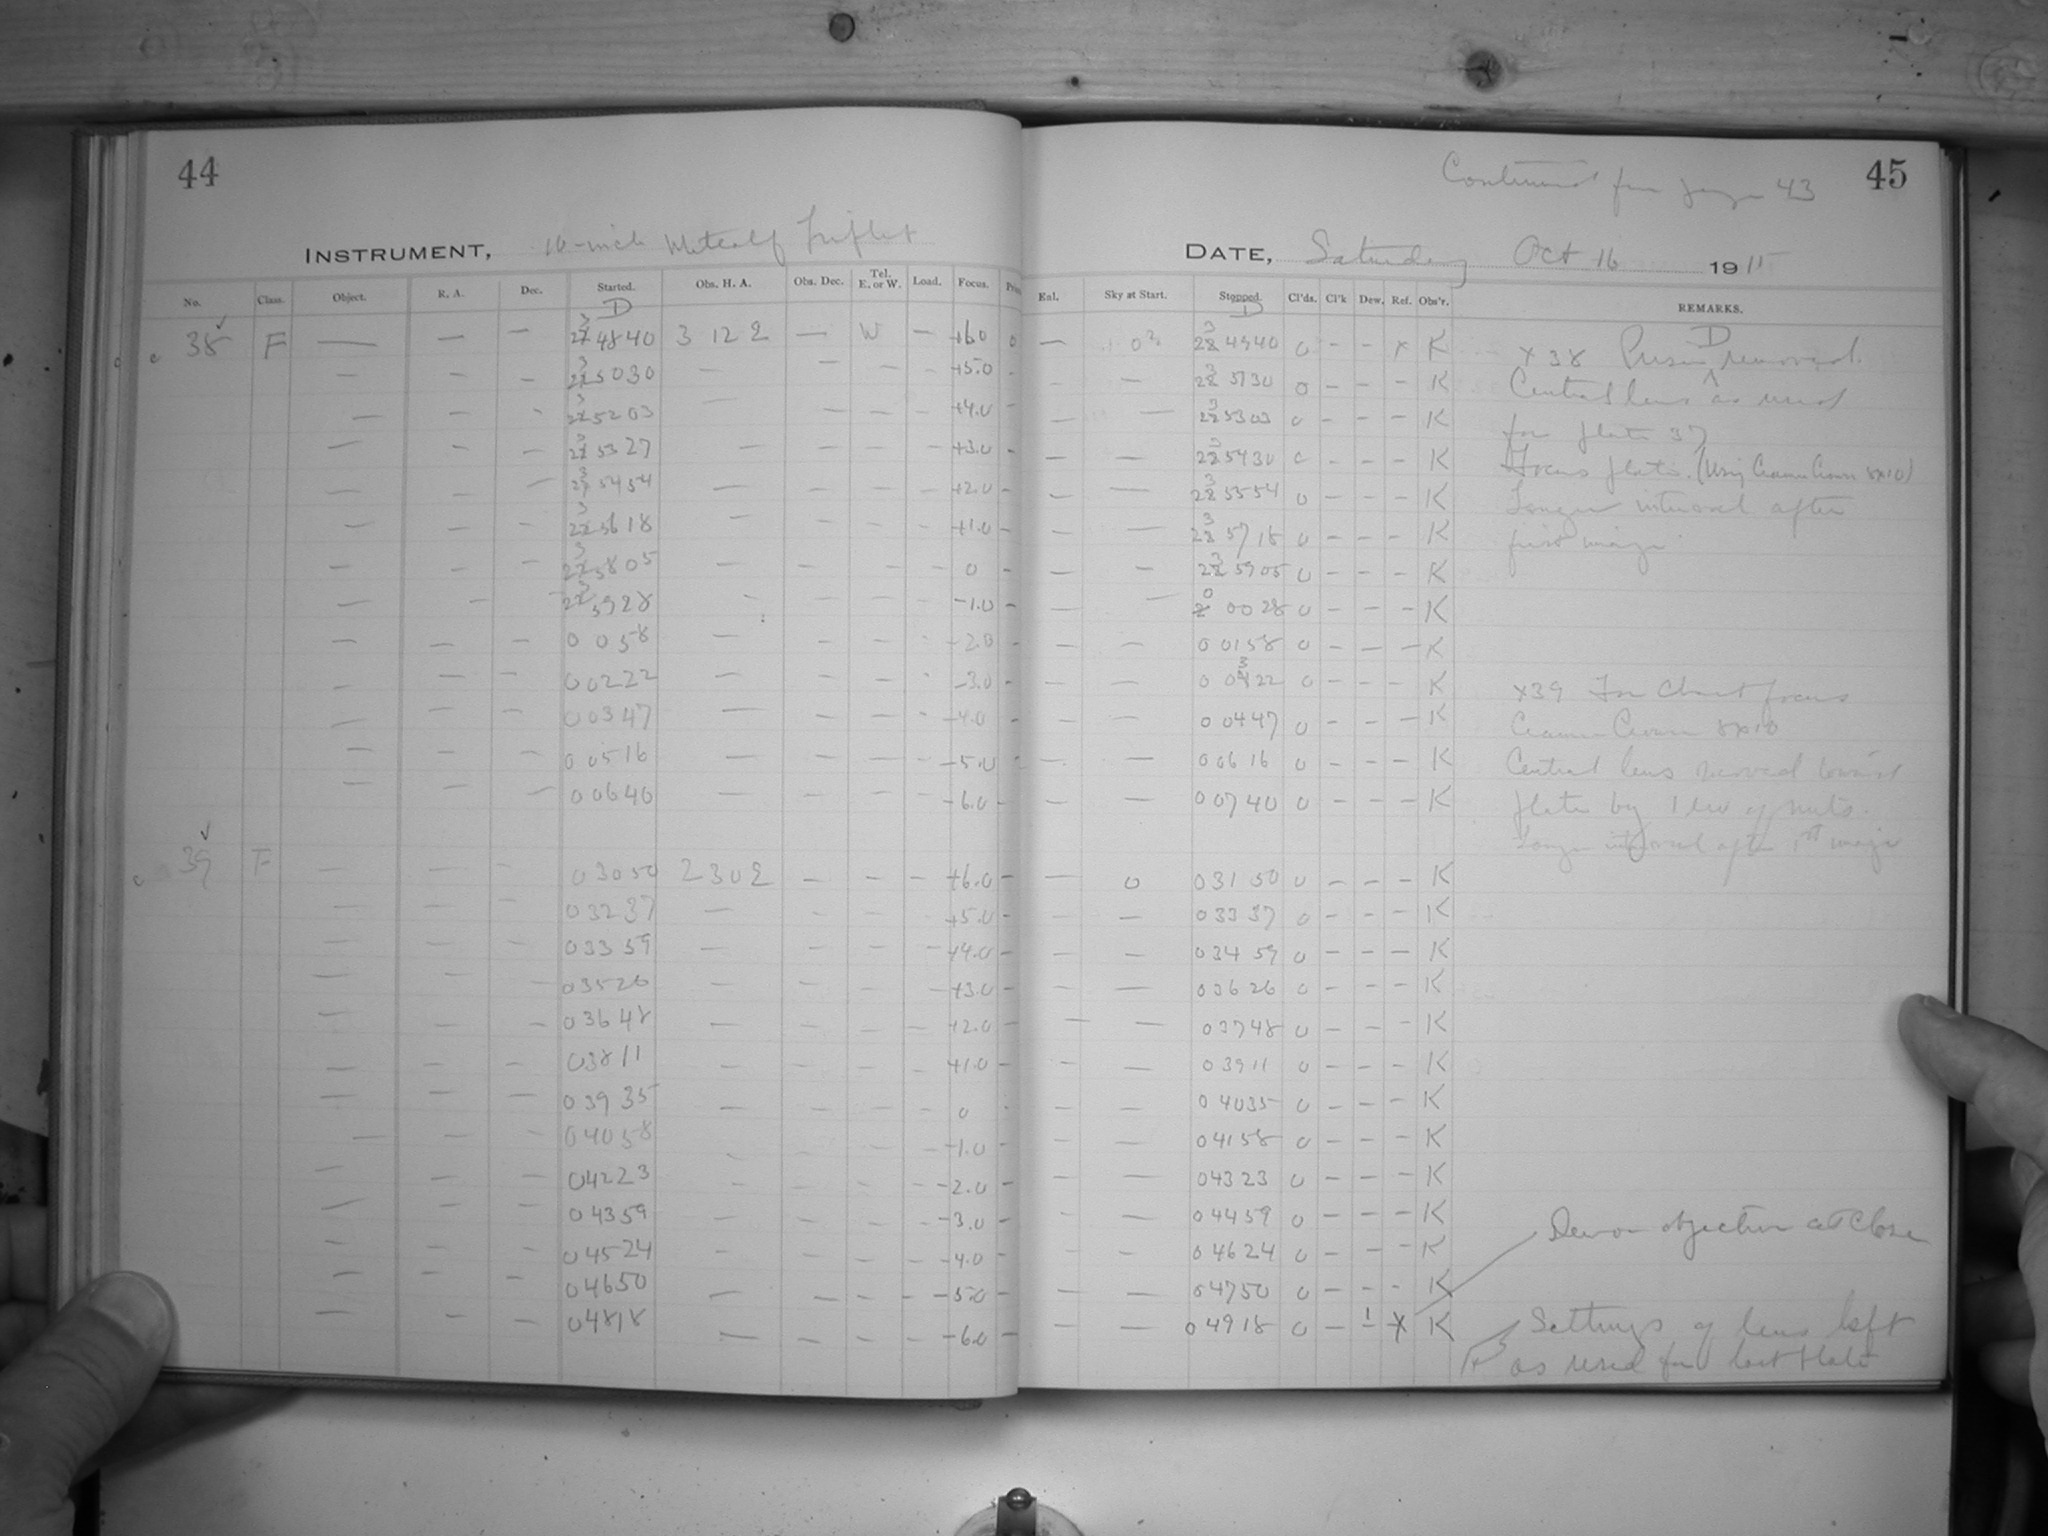 44
INSTRUMENT, 16-inch Metcalf Triplet
No. Class. Object. R. A. Dec. Started. Obs. H. A. Obs. Dec. Tel. E. or W. Load. Focus.
D
38 F — — — 23 48 40 3 12 E — W — +6.0 0
— — — 23 50 30 — — — — +5.0 -
— — - 23 52 03 — — — — +4.0 -
— — — 23 53 27 — — — — +3.0 -
— — — 23 54 54 — — — — +2.0 -
— — — 23 56 18 — — — — +1.0 -
— — — 23 58 05 — — — — 0 -
— — — 23 59 28 - — — - -1.0 -
— — — 0 0 58 — — — - -2.0 -
— — — 0 02 22 — — — - -3.0 -
— — — 0 03 47 — — — - -4.0 -
— — — 0 05 16 — — — — -5.0 -
— — — 0 06 40 — — — - -6.0 -
39 F — — — 0 30 50 2 30 E — — — +6.0 -
— — — 0 32 37 — — — - +5.0 -
— — — 0 33 59 — — — — +4.0 -
— — — 0 35 26 — — — — +3.0 -
— — — 0 36 48 — — — — +2.0 -
— — — 0 38 11 — — — — +1.0 -
— — — 0 39 35 — — — - 0 -
— — — 0 40 58 - - — - -1.0 -
— — — 0 42 23 - - - - -2.0 -
— — — 0 43 59 - — — - -3.0 -
— — — 0 45 24 - - — - -4.0 -
— — — 0 46 50 — — — - -5.0 -
— — — 0 48 18 — — — - -6.0 -
45
Continued from page 43
DATE, Saturday Oct 16 1915
Eal. Sky at Start. Stopped. Cl'ds. Cl'k Dew. Ref. Obs'r. REMARKS.
D
— 0 23 49 40 0 - - x K
- — 23 51 30 0 - - - K
— — 23 53 03 0 - - - K
— — 23 54 30 0 - - - K
— — 23 55 54 0 - - - K
— — 23 57 18 0 - - - K
— — 23 59 05 0 - - - K
— — 0 00 28 0 - - - K
— — 0 01 58 0 - - - K
— — 0 03 22 0 - - - K
— — 0 04 47 0 - - - K
— — 0 06 16 0 - - - K
— — 0 07 40 0 - - - K
— 0 0 31 50 0 - - - K
- — 0 33 37 0 - - - K
— — 0 34 59 0 - - - K
— — 0 36 26 0 - - - K
— — 0 37 48 0 - - - K
— — 0 39 11 0 - - - K
— — 0 40 35 0 - - - K
— — 0 41 58 0 - - - K
— — 0 43 23 0 - - - K
— — 0 44 59 0 - - - K
- - 0 46 24 0 - - - K
— — 0 47 50 0 - - - K
— — 0 49 18 0 - 1 x K
x 38 Prism D removed.
Central lens ^ as used
for plate 37
Focus plate. (Using Cramer Crown 8x10)
Longer interval after
first image
x39 For Chart focus
Cramer Crown 8x10
Central lens moved toward
plate by 1 div of nuts.
Longer interval after 1st image
Dew on objective at Close
Settings of lens left
as used for last plate